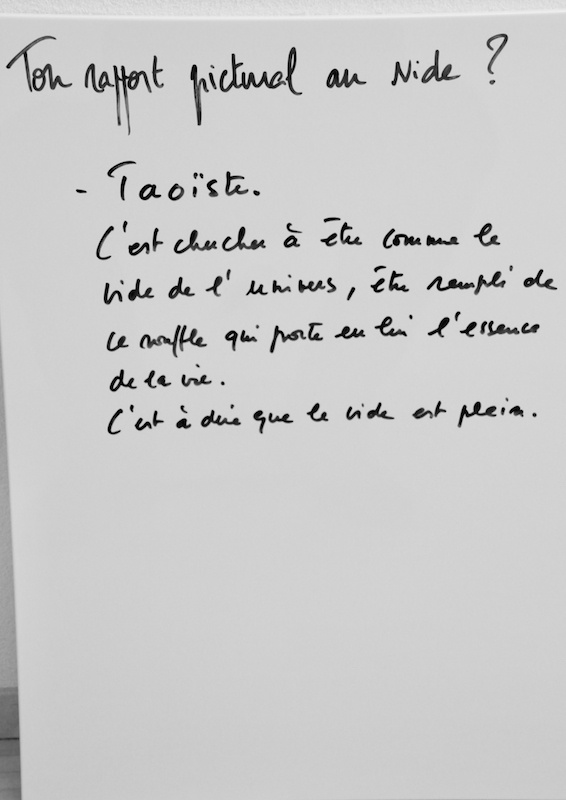 Ton rapport pictural au vide ?
- Taoïste.
C'est chercher à être comme le
vide de l'univers, être rempli de
ce souffle qui porte en lui l'essence
de la vie.
C'est à dire que le vide est plein.